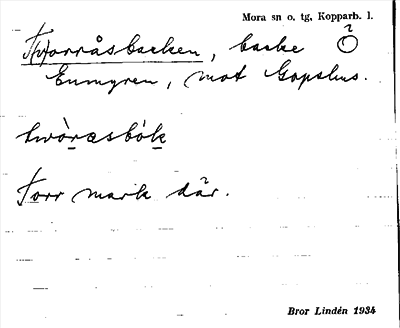 Mora sn o. tg, Kopparb. l.
T(v)orråsbacken, backe Ö
Enmyren, mot Gopshus.
twòrasbòk
Torr mark där.
Bror Lindén 1934